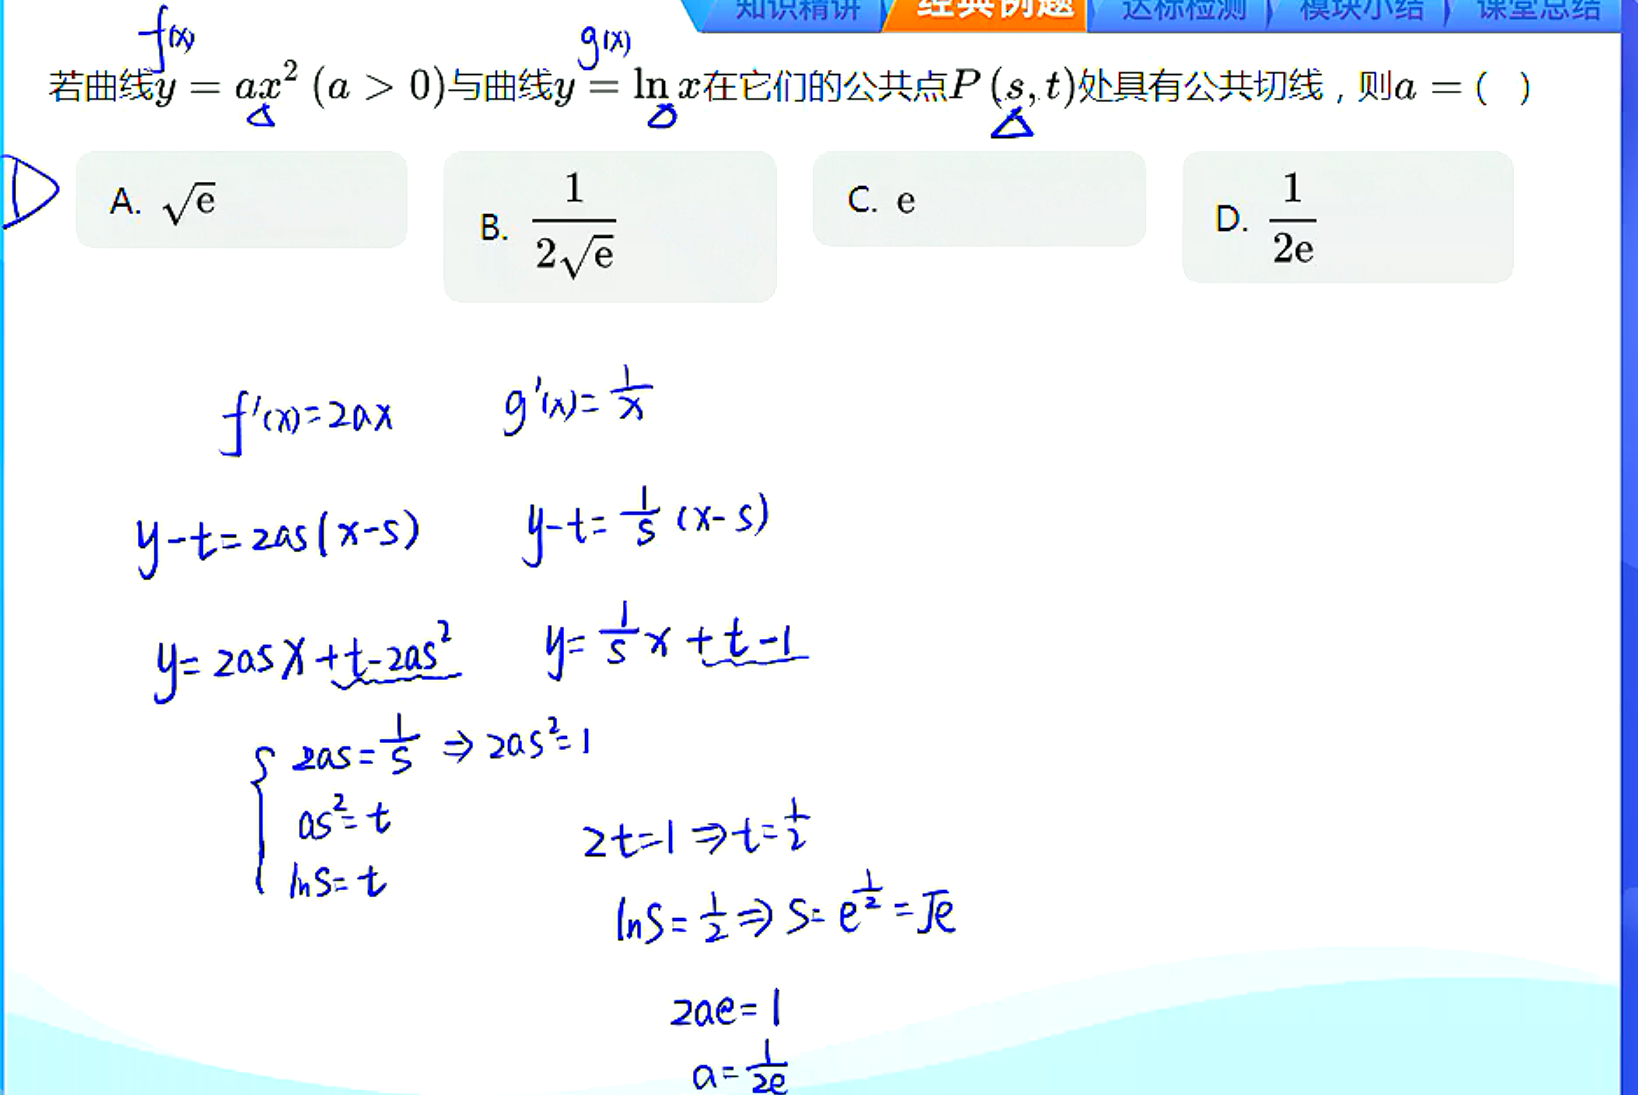 知识精讲 经典例题 达标检测 模块小结 课堂总结
f(x) g(x)
若曲线y = ax² (a > 0)与曲线y = ln x在它们的公共点P (s, t)处具有公共切线，则a = ( )
D
A. √e
B. 1/(2√e)
C. e
D. 1/(2e)
f'(x)=2ax g'(x)=1/x
y-t=2as(x-s) y-t=1/s(x-s)
y=2asx+t-2as² y=1/s x+t-1
{ 2as=1/s ⇒ 2as²=1
as²=t
lns=t
2t=1 ⇒ t=1/2
lns=1/2 ⇒ s=e^(1/2)=√e
2ae=1
a=1/(2e)